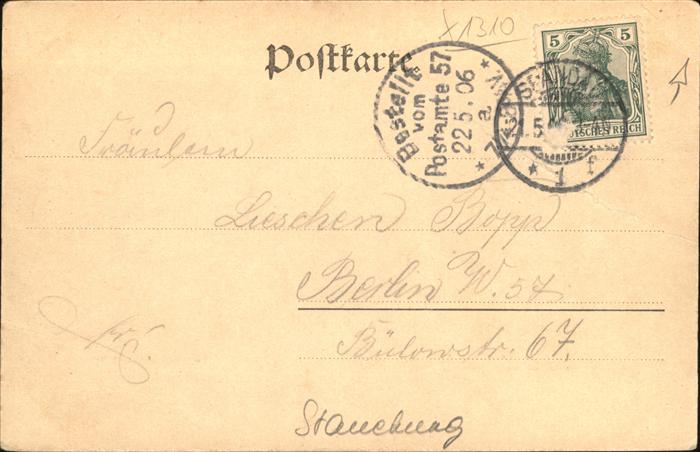 X1310
Postkarte.
5 5
DEUTSCHES REICH
Bestellt
vom
Postamte 57
22.5.06
SPANDAU
* 1 f
Fräulein
Lieschen Bopp
Berlin W. 57
Bülowstr. 67.
Stauchung